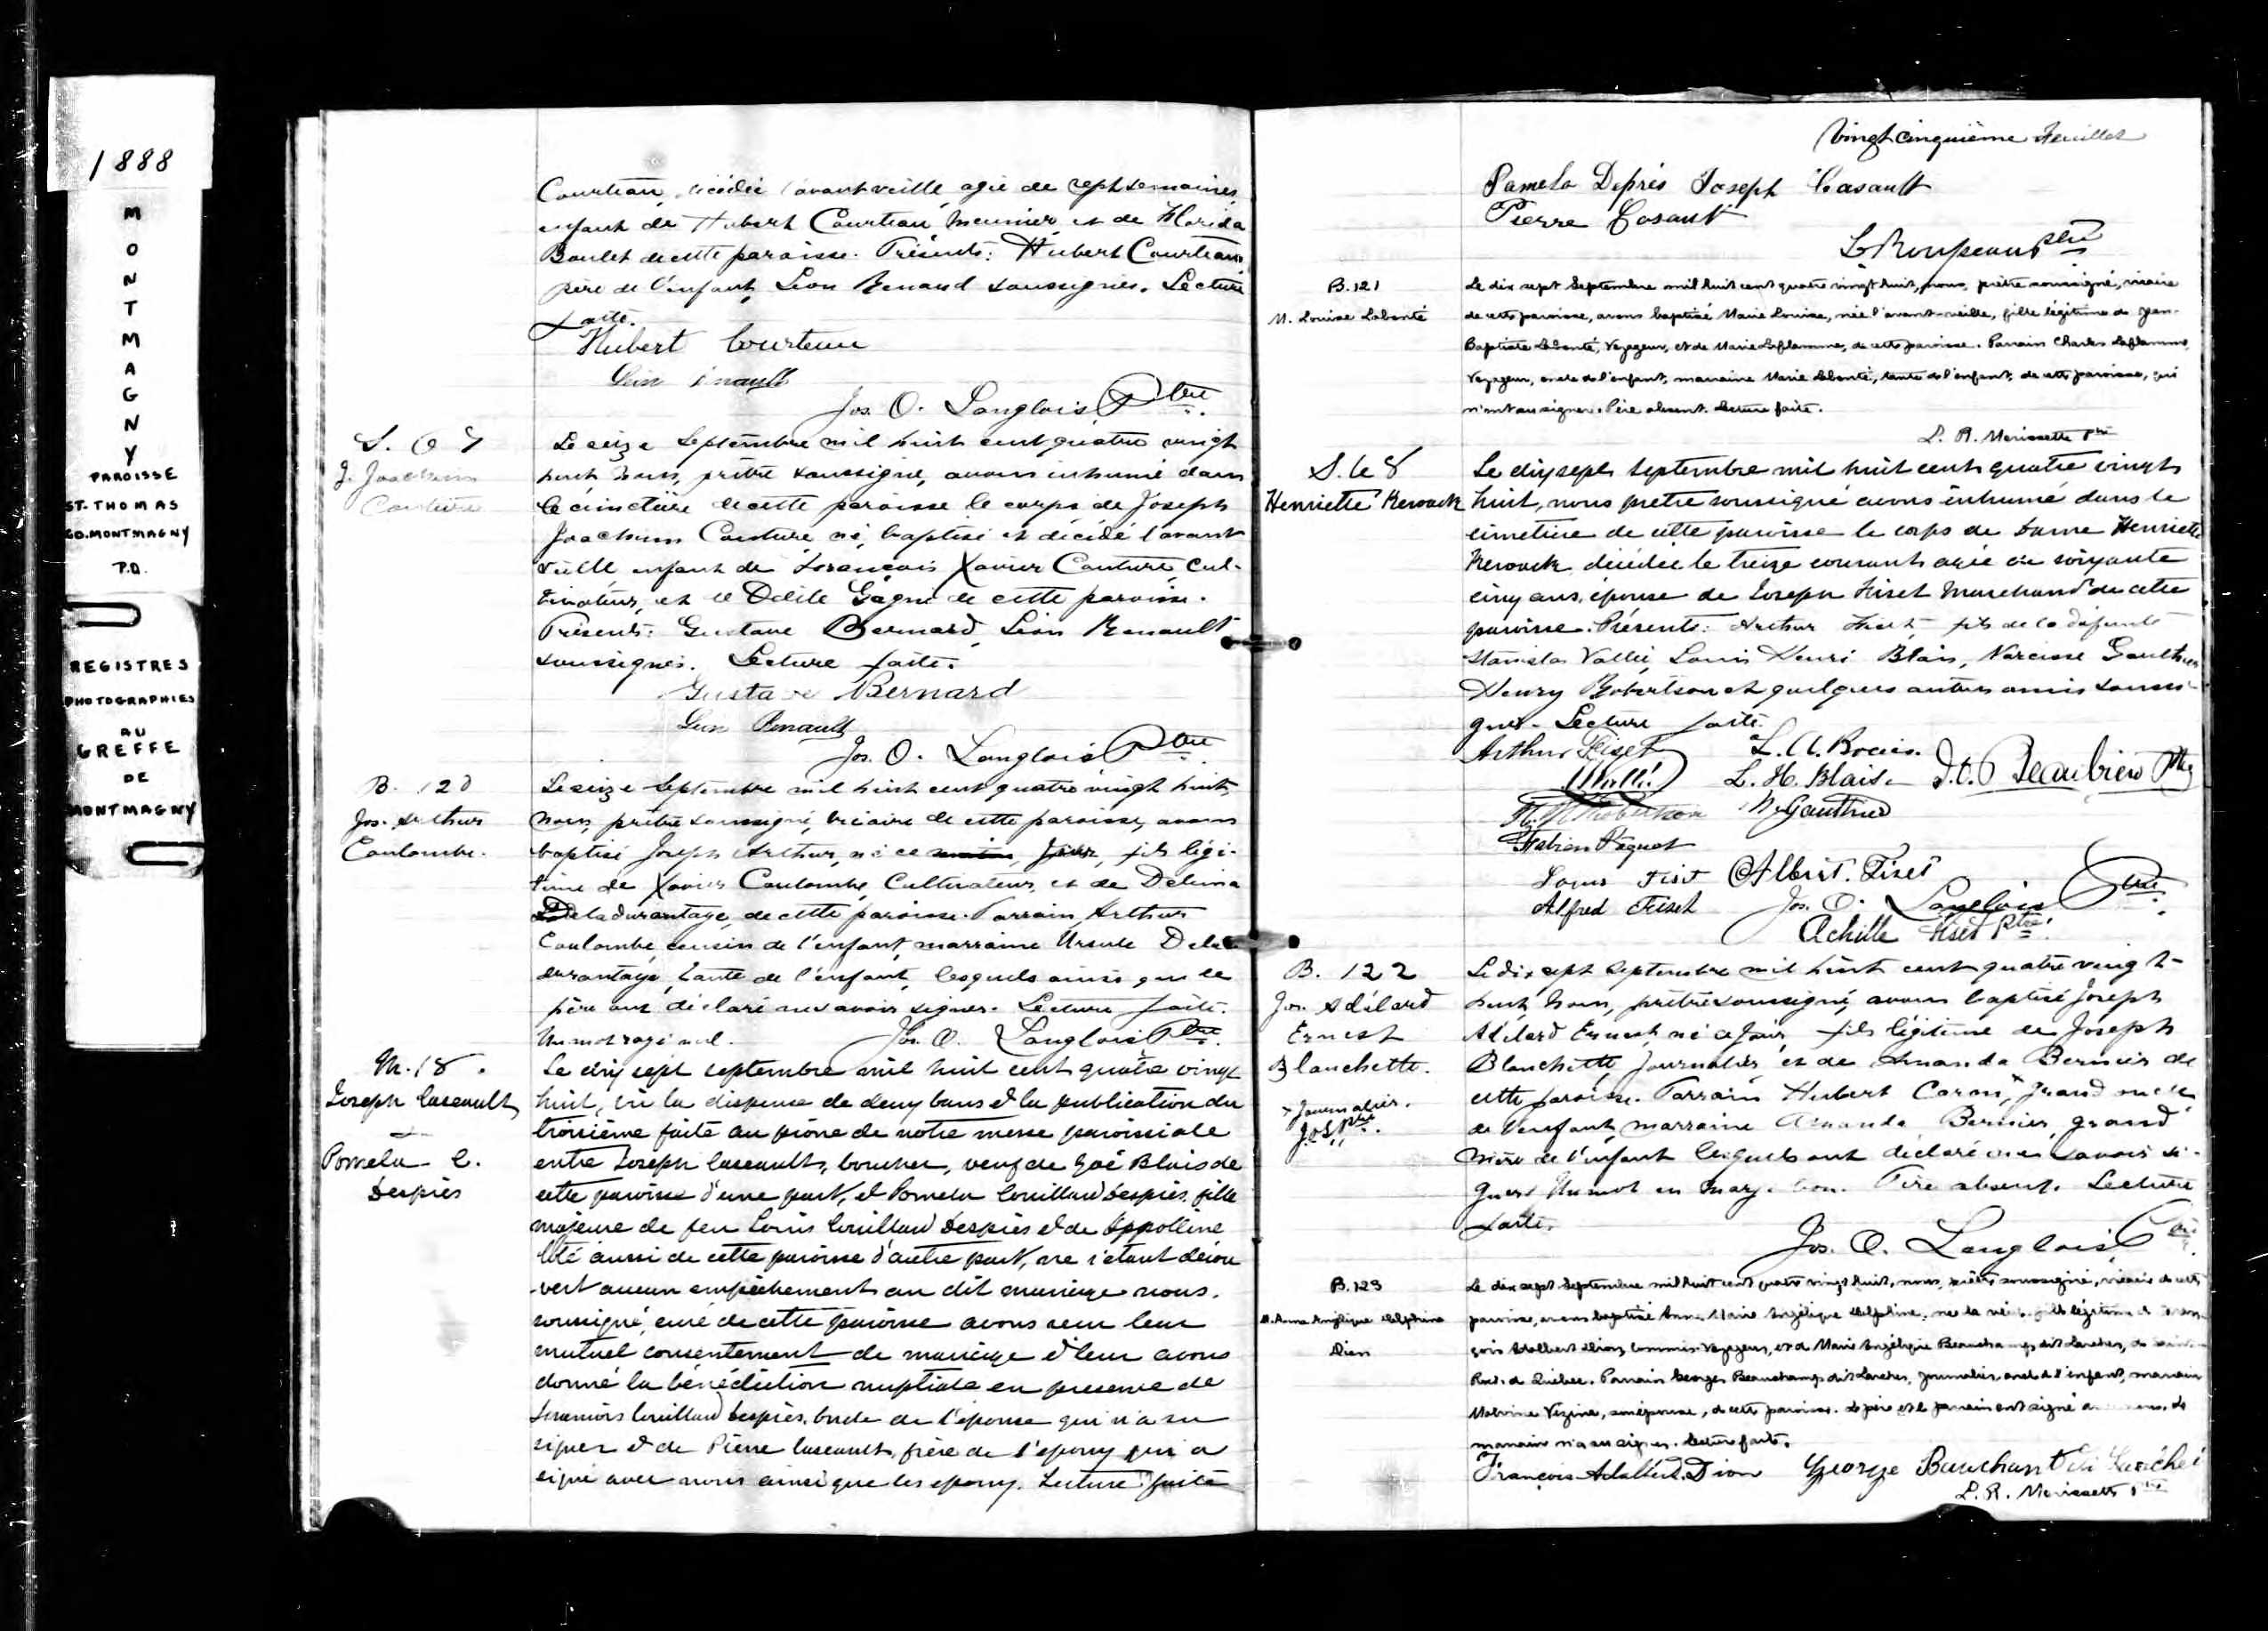 1888
MONTMAGNY
PAROISSE
ST-THOMAS
CO.MONTMAGNY
P.Q.
REGISTRES
PHOTOGRAPHIES
AU
GREFFE
DE
MONTMAGNY
Courteau, décédée l'avant veille, agée de sept semaines,
enfant de Hubert Courteau, meunier, et de Florida
Boulet de cette paroisse. Présents: Hubert Courteau
père de l'enfant, Léon Renaud soussignés. Lecture
faite.
Hubert Courteau
Jos. O. Langlois Ptre
S. 67
J. Joachim
Couture
Le seize Septembre mil huit cent quatre vingt
huit, nous, prêtre soussigné, avons inhumé dans
le cimetière de cette paroisse le corps de Joseph
Joachim Couture, né, baptisé et décédé l'avant
veille enfant de François Xavier Couture, cul-
tivateur, et de Délile Gagné de cette paroisse.
Présents: Gustave Bernard, Léon Renault
soussignés. Lecture faite.
Gustave Bernard
Léon Renault
Jos. O. Langlois Ptre
B. 120
Jos. Arthur
Coulombe.
Le seize Septembre mil huit cent quatre vingt huit,
nous, prêtre soussigné, vicaire de cette paroisse, avons
baptisé Joseph Arthur, né ce jour, fils légi-
time de Xavier Coulombe, Cultivateur, et de Délima
Deladurantaye, de cette paroisse. Parrain, Arthur
Coulombe, cousin de l'enfant, marraine Ursule Dela
durantaye, tante de l'enfant, lesquels ainsi que le
père ont déclaré ne savoir signer. Lecture faite.
Un mot rayé nul. Jos. O. Langlois Ptre
M. 18.
Joseph Caseault
&
Pomela C.
Després
Le dix sept septembre mil huit cent quatre vingt
huit, vu la dispense de deux bans & la publication du
troisième faite au prône de notre messe paroissiale
entre Joseph Caseault, boucher, veuf de Zoé Blais de
cette paroisse d'une part, & Pomela Couillard Després, fille
majeure de feu Louis Couillard Després & de Appolline
Coté aussi de cette paroisse d'autre part, ne s'étant décou
-vert aucun empêchement au dit mariage nous,
soussigné, curé de cette paroisse avons reçu leur
mutuel consentement de mariage & leur avons
donné la bénédiction nuptiale en présence de
Couillard Després, oncle de l'épouse qui n'a su
signer & de Pierre Caseault, frère de l'époux qui a
signé avec nous ainsi que les époux. Lecture faite
Vingt cinquième Feuillet
Pamela Després Joseph Casault
Pierre Casault
Ptre
B. 121
M. Louise Labonté
Le dix sept Septembre mil huit cent quatre vingt huit, nous, prêtre soussigné, vicaire
de cette paroisse, avons baptisé Marie Louise, née l'avant-veille, fille légitime de Jean-
Baptiste Labonté, Voyageur, et de Marie Laflamme, de cette paroisse. Parrain Charles Laflamme,
Voyageur, oncle de l'enfant, marraine Marie Labonté, tante de l'enfant, de cette paroisse, qui
n'ont su signer. Père absent. Lecture faite.
L. R. Morissette Ptre
S. 68
Henriette Kerouack
Le dix sept Septembre mil huit cent quatre vingt
huit, nous prêtre soussigné avons inhumé dans le
cimetière de cette paroisse le corps de Dame Henriette
Kerouack décédée le treize courant agée de soixante
cinq ans, épouse de Joseph Fiset Marchand de cette
paroisse. Présents: Arthur Fiset, fils de la défunte
Stanislas Vallée, Louis Henri Blais, Narcisse Gauthier
Henry Robertson et quelques autres amis soussi-
gnés. Lecture faite.
Arthur Fiset
L. H. Blais
N. Gauthier
Fabien Paquet
Louis Fiset Albert. Fiset
Alfred Fiset Jos. O. Langlois Ptre
Achille Fiset Ptre
B. 122
Jos. Adélard
Ernest
Blanchette.
+ Journalier.
Le dix sept Septembre mil huit cent quatre vingt-
huit, nous, prêtre soussigné, avons baptisé Joseph
Adélard Ernest, né ce jour, fils légitime de Joseph
Blanchette, Journalier et de Amanda Bernier de
cette paroisse. Parrain Hubert Caron,+ grand oncle
de l'enfant, marraine Amanda Bernier, grand'
mère de l'enfant lesquels ont déclaré ne savoir si-
gner. Un mot en marge bon. Père absent. Lecture
faite.
Jos. O. Langlois Ptre
B. 123
M. Anna Angélique Delphine
Dion
Le dix sept Septembre mil huit cent quatre vingt huit, nous, prêtre soussigné, vicaire de cette
paroisse, avons baptisé Anna Marie Angélique Delphine, née la veille, fille légitime de Fran-
çois Adalbert Dion, Commis-Voyageur, et de Marie Angélique Beauchamp dit Larcher, de Saint-
Roch de Québec. Parrain Georges Beauchamp dit Larcher, Journalier, oncle de l'enfant, marraine
Malvina Vézina, son épouse, de cette paroisse. Le père et le parrain ont signé avec nous. La
marraine n'a su signer. Lecture faite.
François-Adalbert Dion George Bauchant
L. R. Morissette Ptre